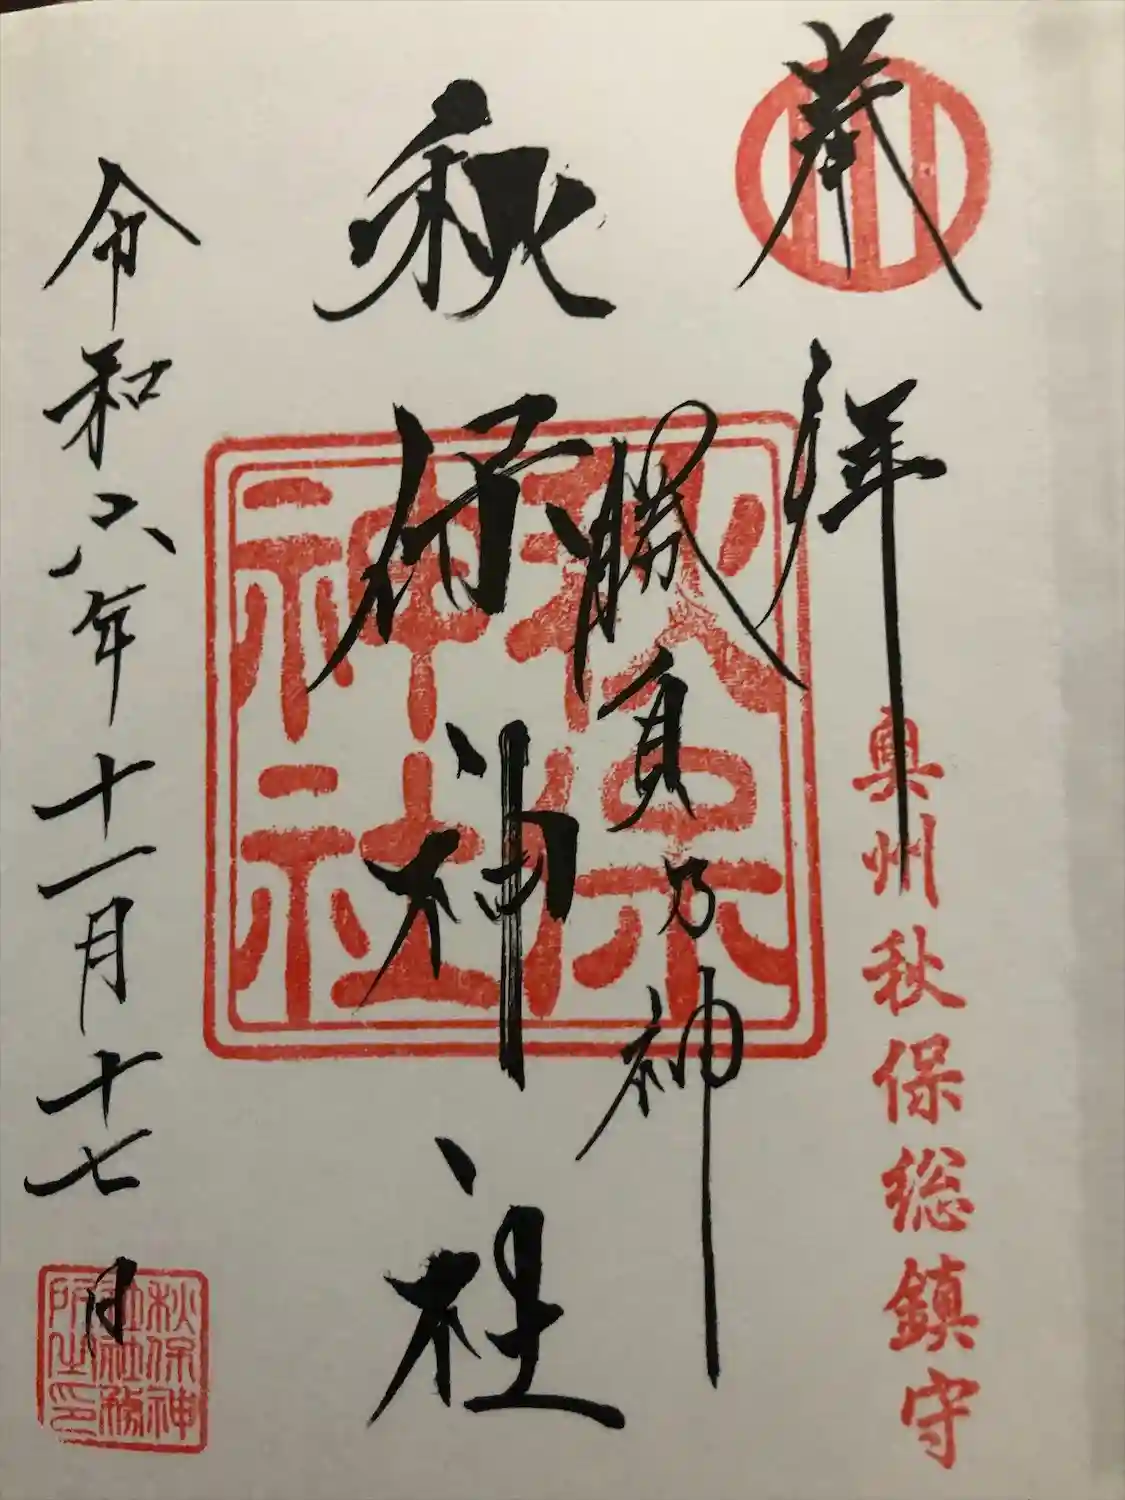 奉拝
奥州秋保総鎮守
勝負乃神
秋保神社
秋保
神社
令和六年十一月十七日
秋保神
社社務
所之印